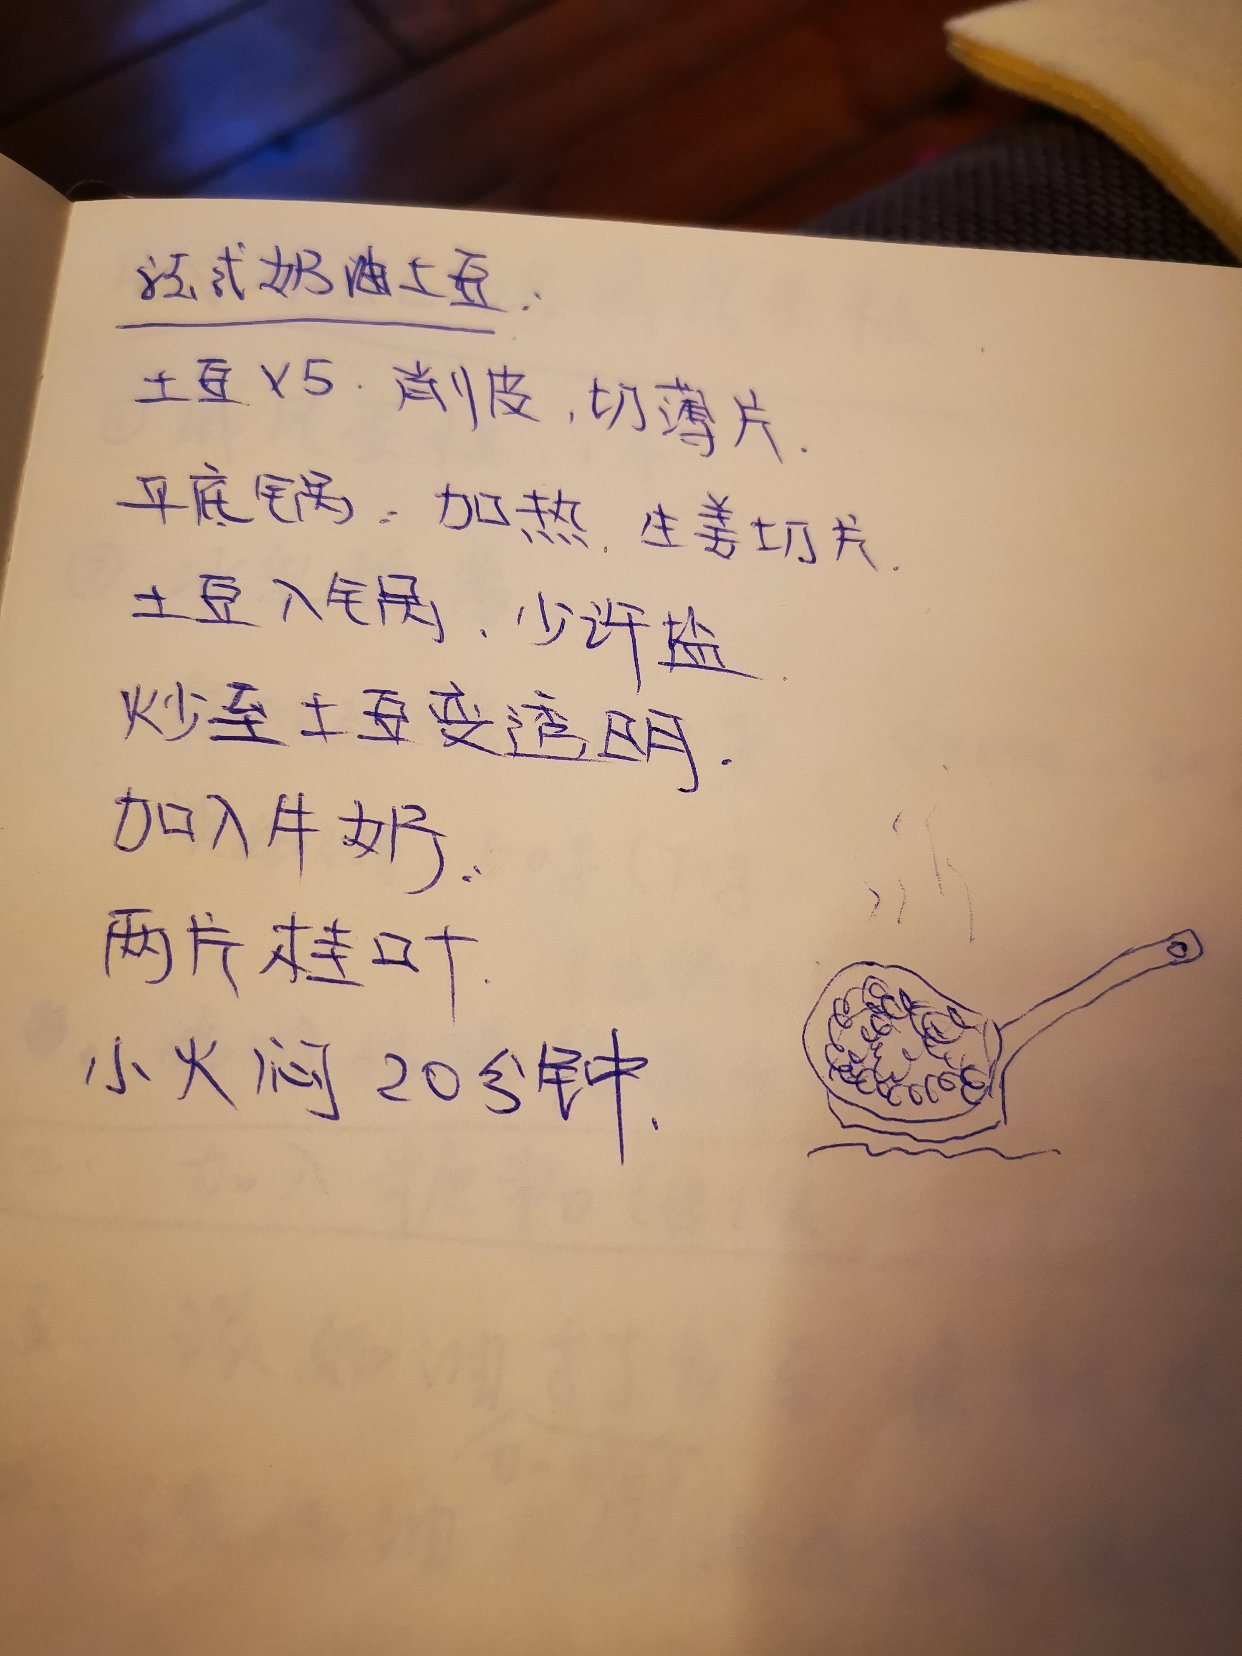 法式奶油土豆:
土豆×5. 削皮,切薄片.
平底锅: 加热. 生姜切片.
土豆入锅, 少许盐.
炒至土豆变透明.
加入牛奶:
两片桂叶.
小火焖20分钟.